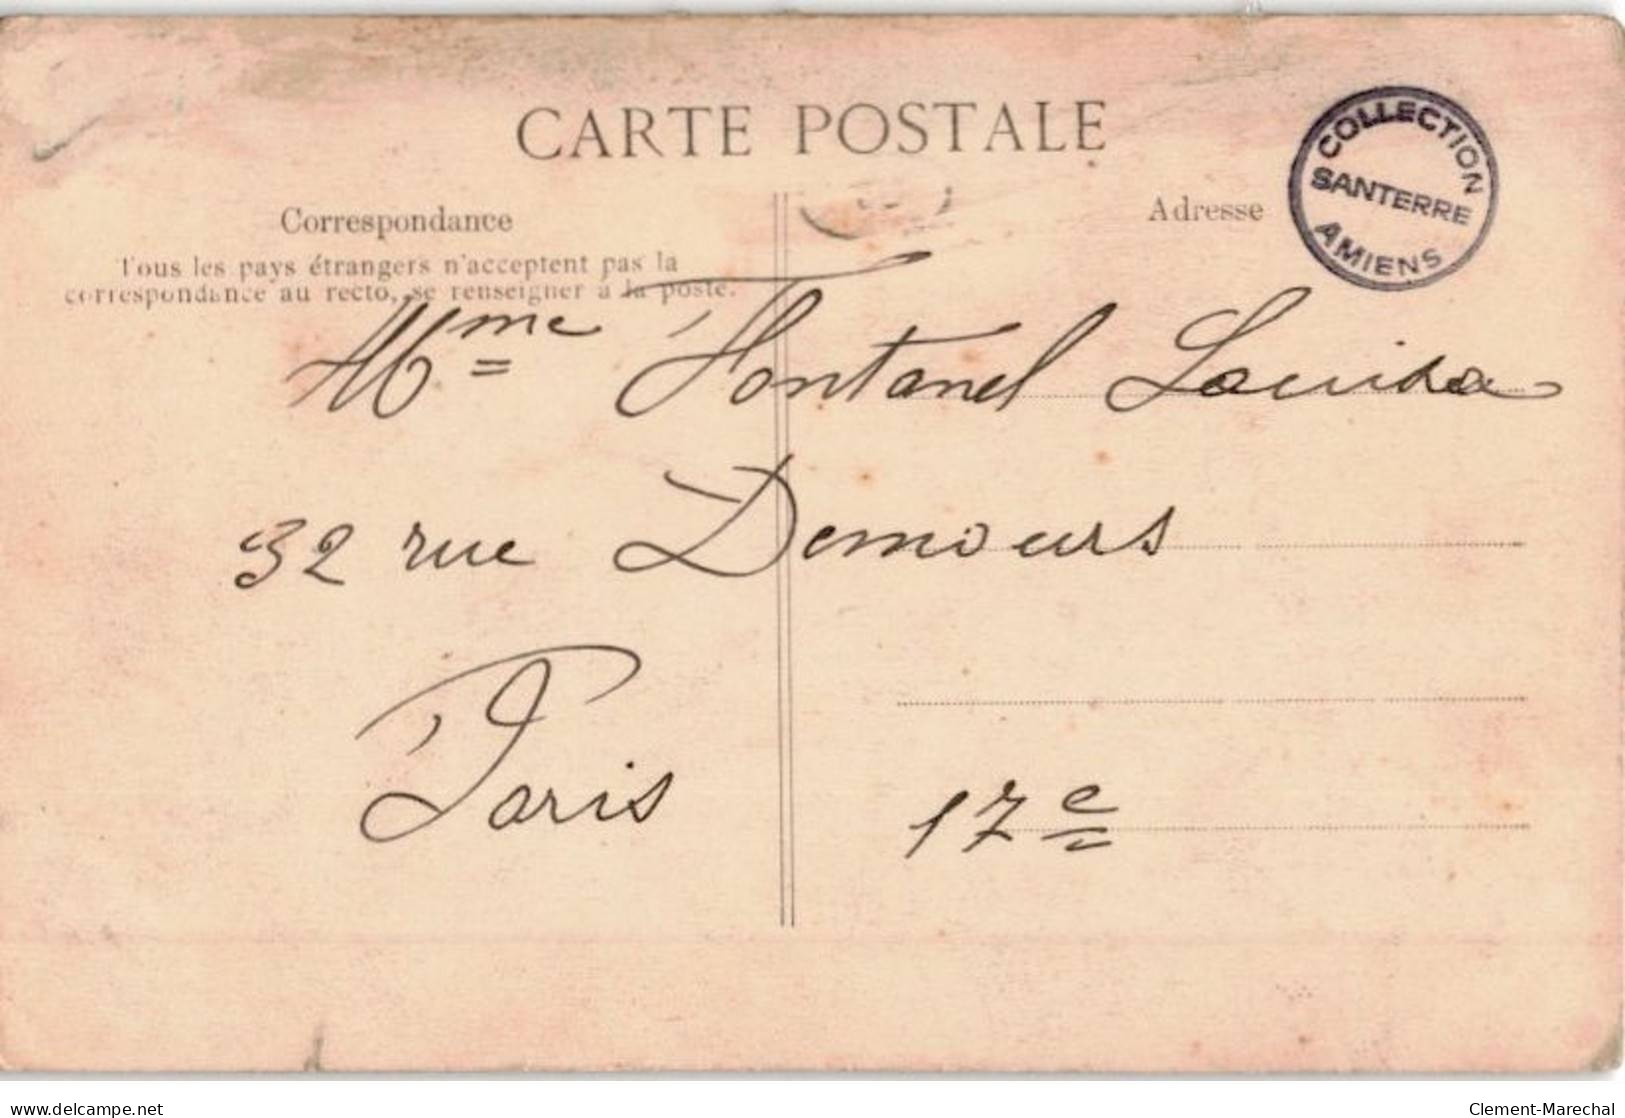 CARTE POSTALE
COLLECTION
SANTERRE
AMIENS
Correspondance
Adresse
Tous les pays étrangers n'acceptent pas la
correspondance au recto, se renseigner à la poste.
Mme Fontanel Louisa
32 rue Demours
Paris
17e
delcampe.net
Clement-Marechal